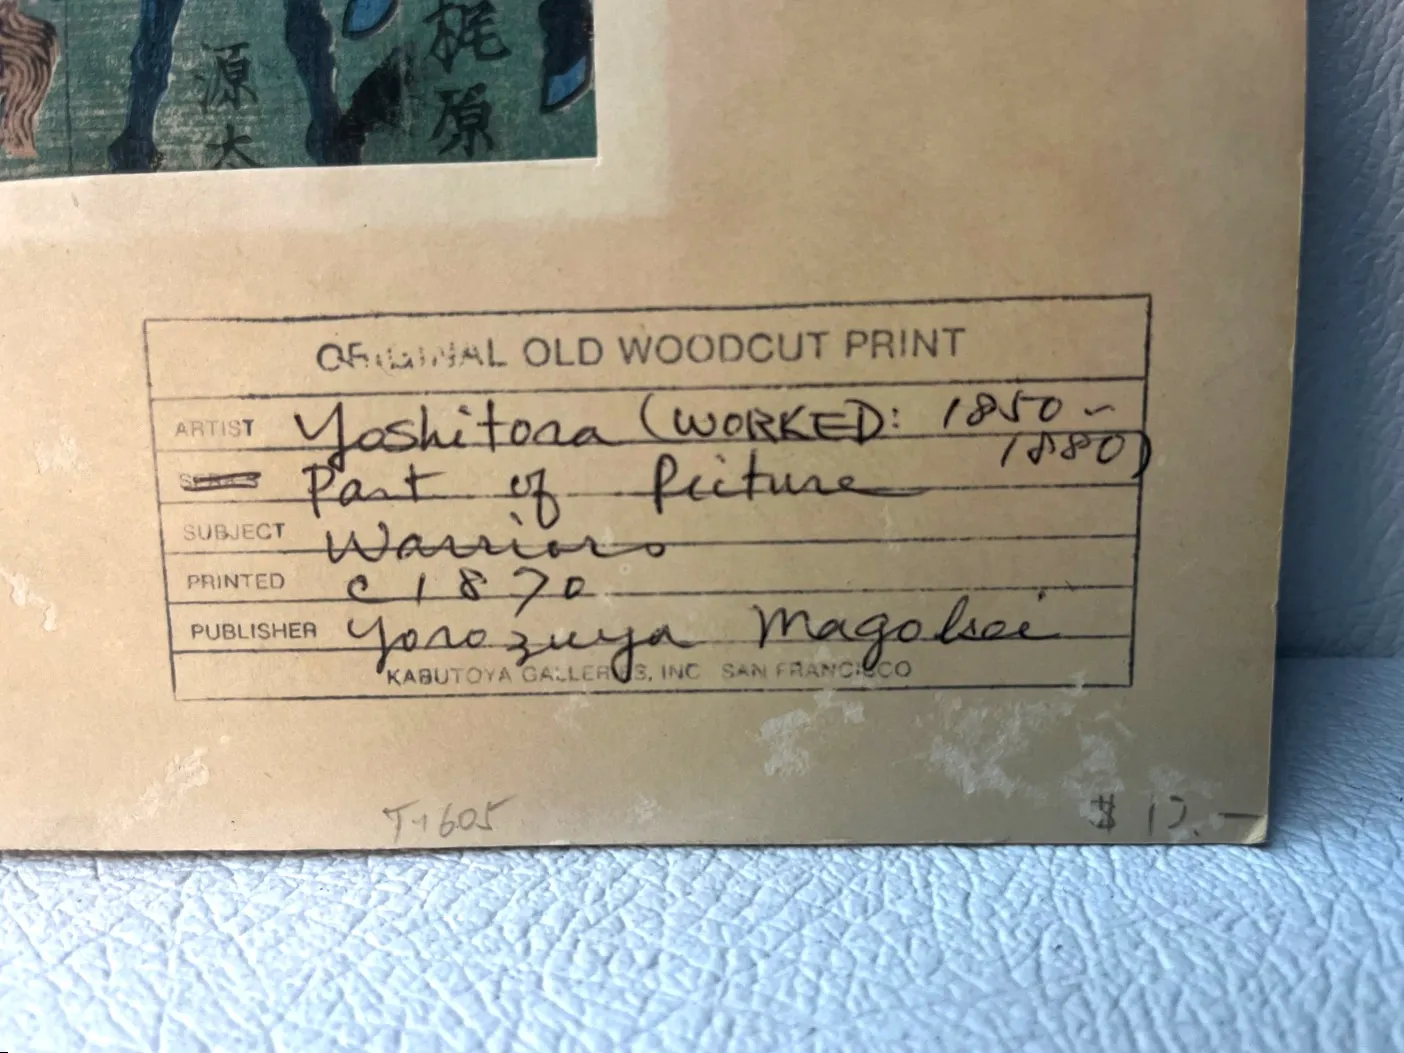 梶原
源太
ORIGINAL OLD WOODCUT PRINT
ARTIST Yoshitora (WORKED: 1850 ~
1880)
Part of Picture
SUBJECT Warriors
PRINTED c 1870
PUBLISHER Yorozuya Magobei
KABUTOYA GALLERIES, INC SAN FRANCISCO
T-1605